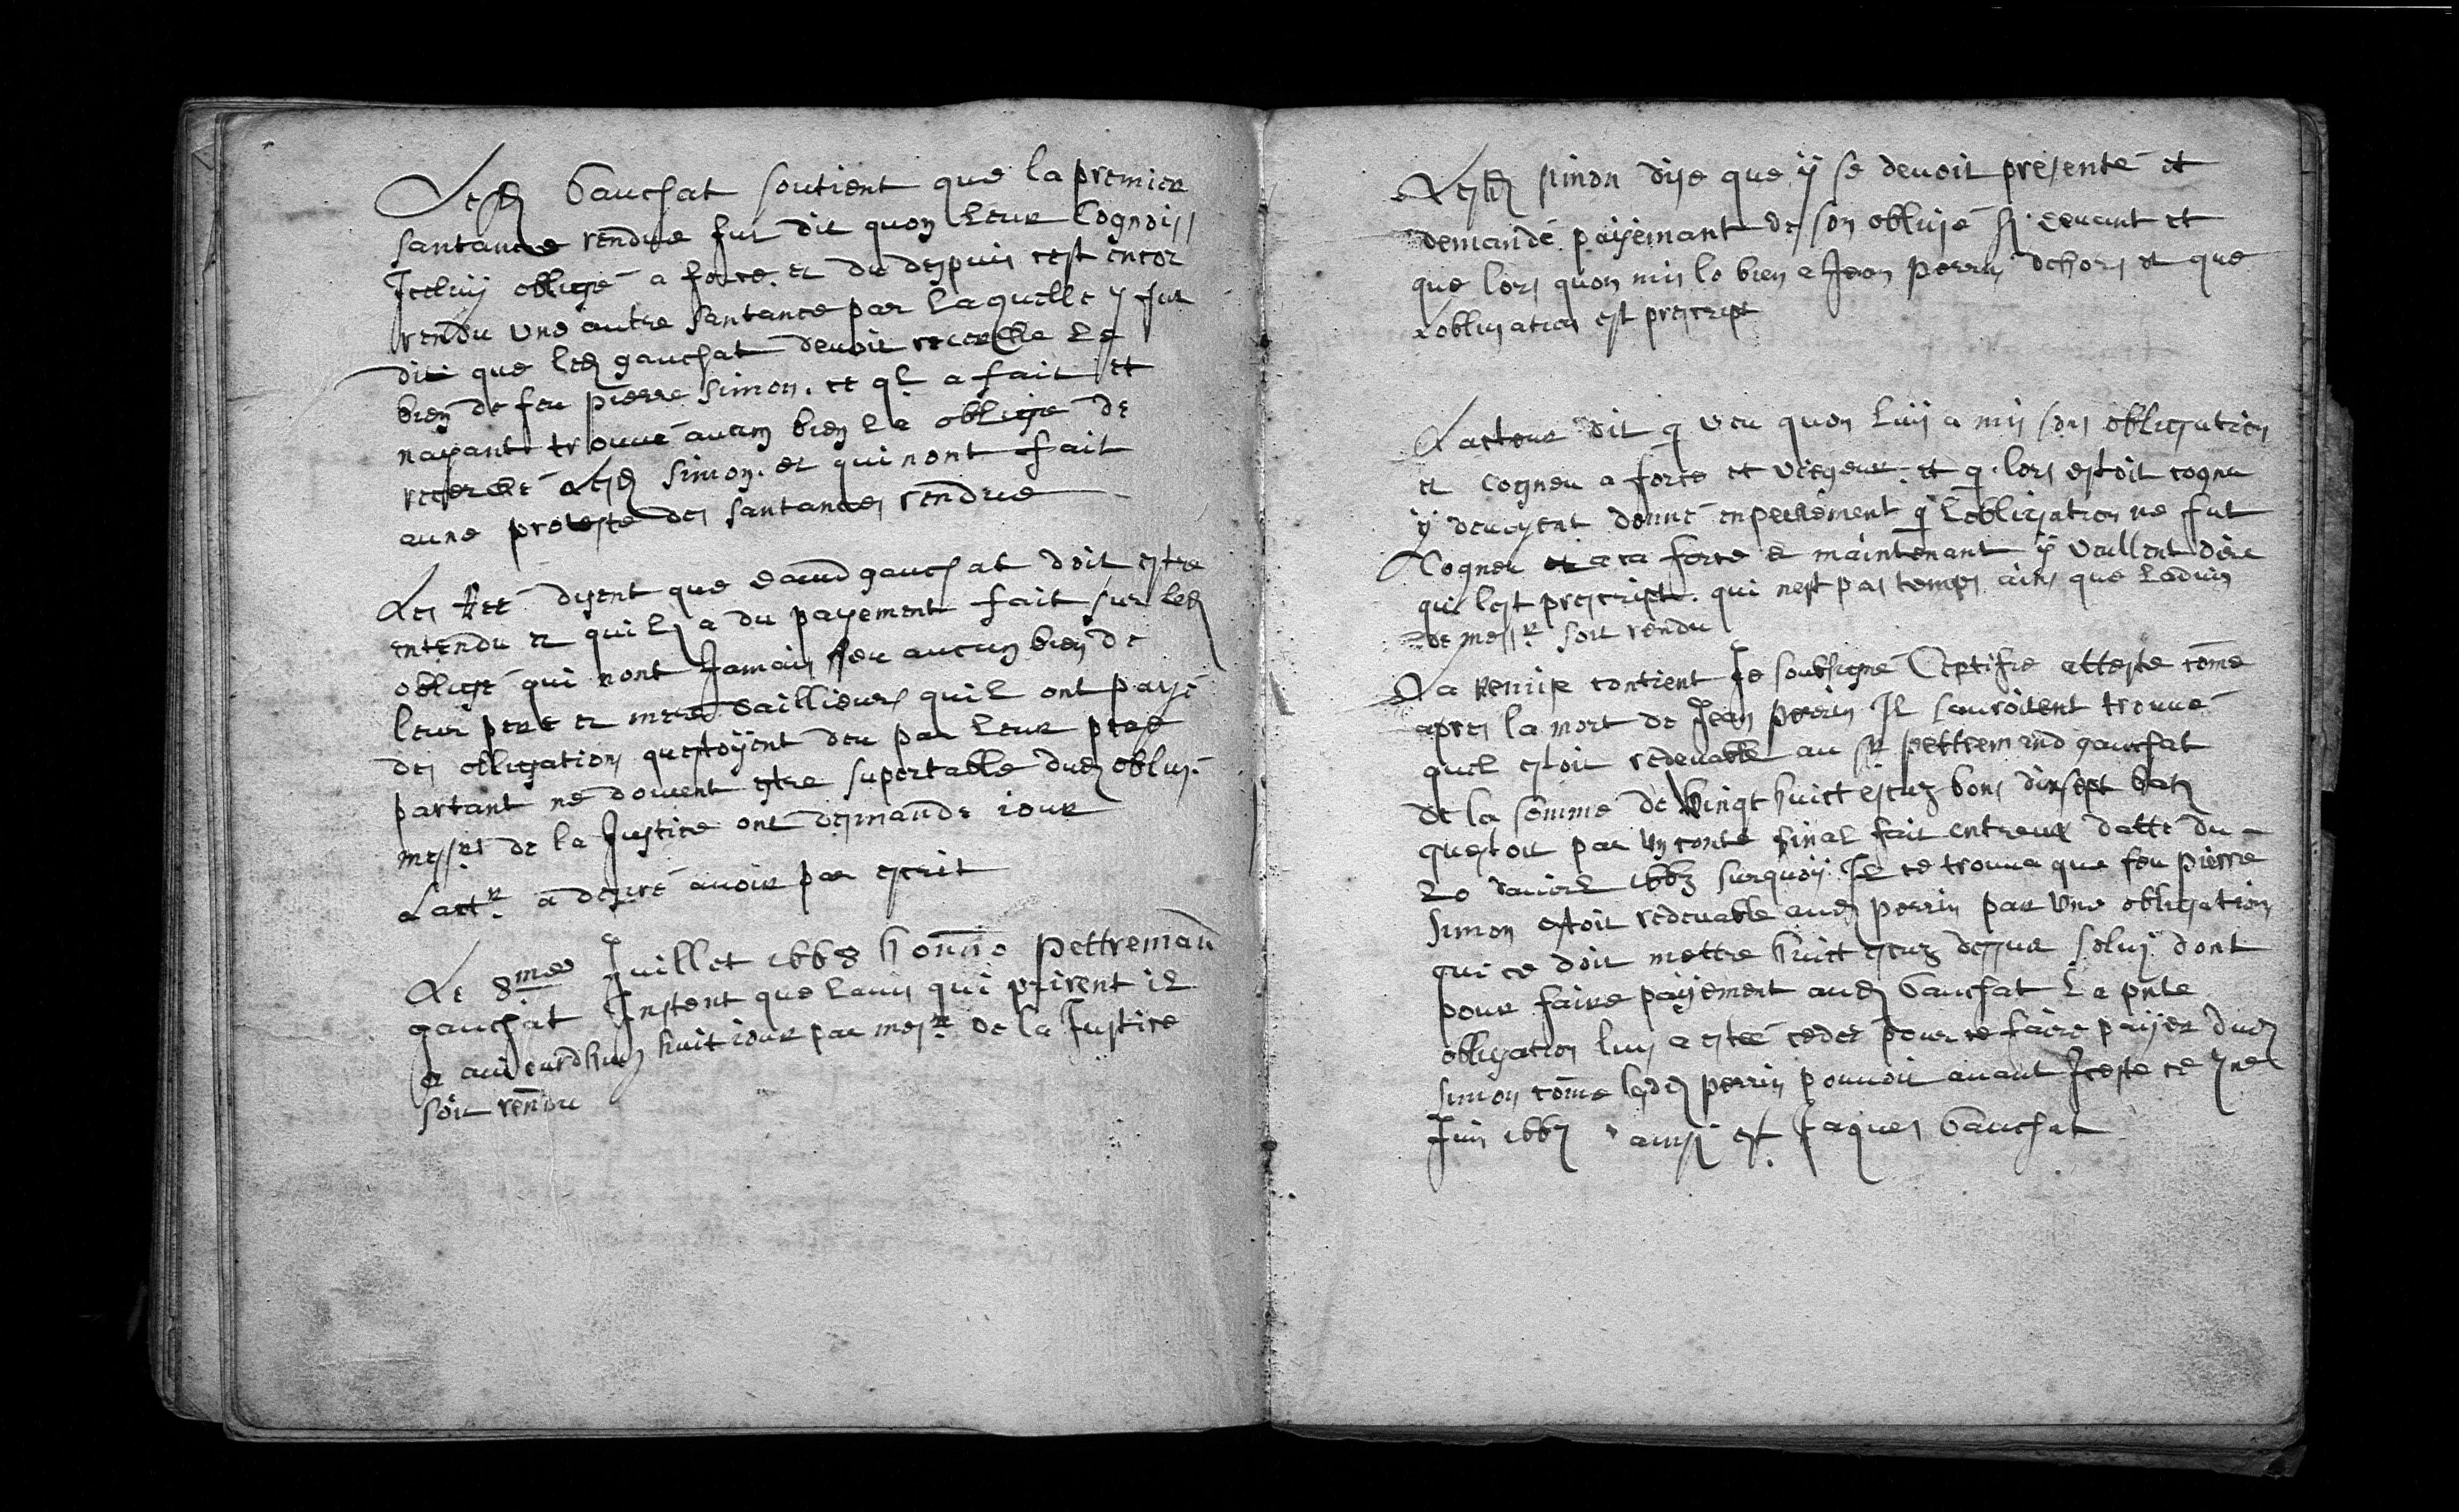 Lesd Gauchat soutient que la premier
santance rendue fut dit quon leur Cognois
Jceluy obligé a force et du despuis cest encor
rendu une autre santance par laquelle y fut
dit que led gauchat devoit recerche le
bien de feu pierre Simon. et ql a fait et
nayant trouvé aucun bien la oblige de
recerché lesd Simon. et qui nont fait
aune proteste des santances rendue
Les dissent que david gauchat doit estre
entendu et quil a du payement fait sur led
obligé qui nont Jamais heu aucun bien de
leur pere et mere dailleurs quil ont payé
des obligations questoyent deu par leur pere
partant ne doivent estre suportable dud oblig.
messrs de la Justice ont demande iour
Lactr a desiré avoir par escrit
Le 8me Juillet 1668 honn̄e Pettreman
gauchat Instent que lavis qui prirent il
a aujourdhuy huit iour par mesrs de la Justice
soit rendu
Lesd simon dise que y se devoit presenté et
demandé payemant de son obligé devant et
que lors quon mis le bien a Jean perrin dehors et que
Lobligation est prescript
Lacteur dit q veu quon luy a mis son obligation
et cogneu a force et viegeur et q. lors estoit cognu
y devoyent donné enpeschement q lobligation ne fut
Cogneu et a ca force et maintenant y veullent dire
qui lest prescripte. qui nest pas temps ains que ladvis
de messrs soit rendu
La remise contient Je soubsigné Certifie atteste cōme
apres la mort de Jean perrin Il sauroitent trouvé
quil estoit redevable au sr pettremand gauchat
de la somme de vingt huict escuz bons dixsept batz
questoit par un conte final fait entreux datté du
Le davril 1663 surquoy Il ce trouva que feu pierre
Simon estoit redevable aud perrin par une obligation
qui ce doit mettre huict escuz dessus soluy dont
pour faire payement aud Gauchat la pn̄te
obligation luy a estéé cedée pour ce faire payer dud
simon cōme led perrin pouvoit avant Jceste ce
Juin 166 ainsi est Jaques Gauchat